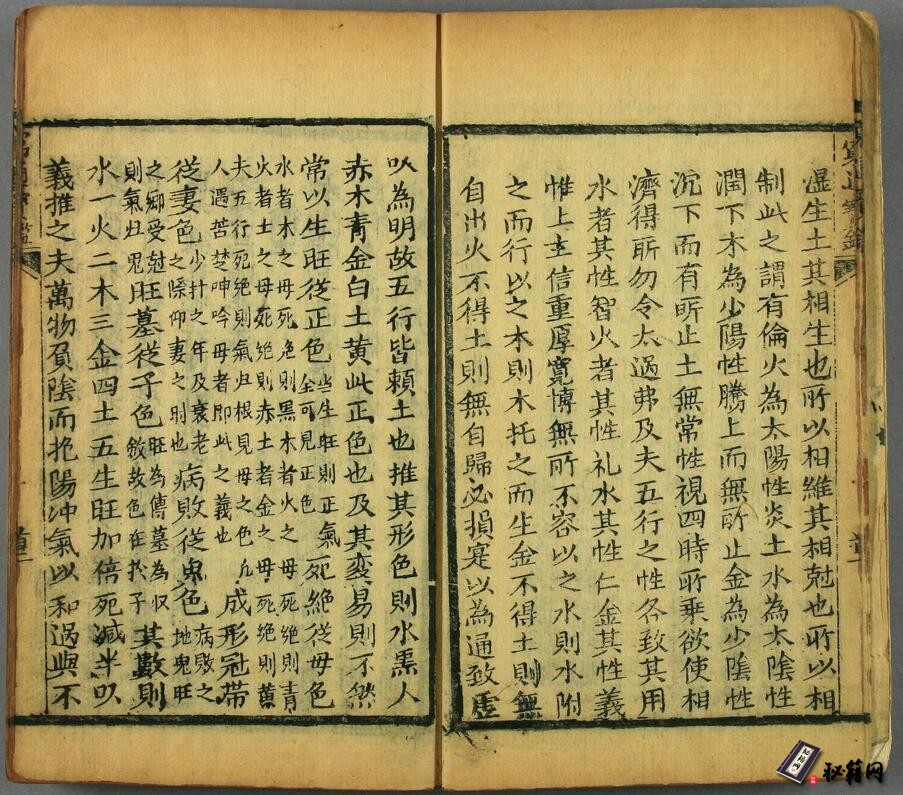 湿生土其相生也所以相維其相尅也所以相
制此之謂有倫火為太陽性炎土水為太陰性
潤下木為少陽性騰上而無所止金為少陰性
沉下而有所止土無常性視四時所乘欲使相
濟得所勿令太過弗及夫五行之性各致其用
水者其性智火者其性礼水其性仁金其性義
惟上主信重厚寛博無所不容以之水則水附
之而行以之本則木托之而生金不得土則無
自出火不得土則無自歸必損寔以為通致虛
以為明故五行皆頼土也推其形色則水黒人
赤木青金白土黄此正色也及其変易則不然
常以生旺從正色當生旺則正氣全可見正色死絶從母色
水者木之母死絶則黒木者火之母死絶則青
火者土之母死絶則赤土者金之母死絶則黄
夫五行死絶則氣归根見母之色凢人遇苦楚呻吟母者即此之義也成形冠帯
從妻色少壮之年及衰老之際仰妻之則也病敗從鬼色病敗之地鬼旺
之郷受尅則氣归鬼旺墓從子色旺為傳墓為収斂故色在於子其数則
水一火二木三金四土五生旺加倍死減半以
義推之夫萬物負陰而抱陽冲氣以和過與不
秘籍网